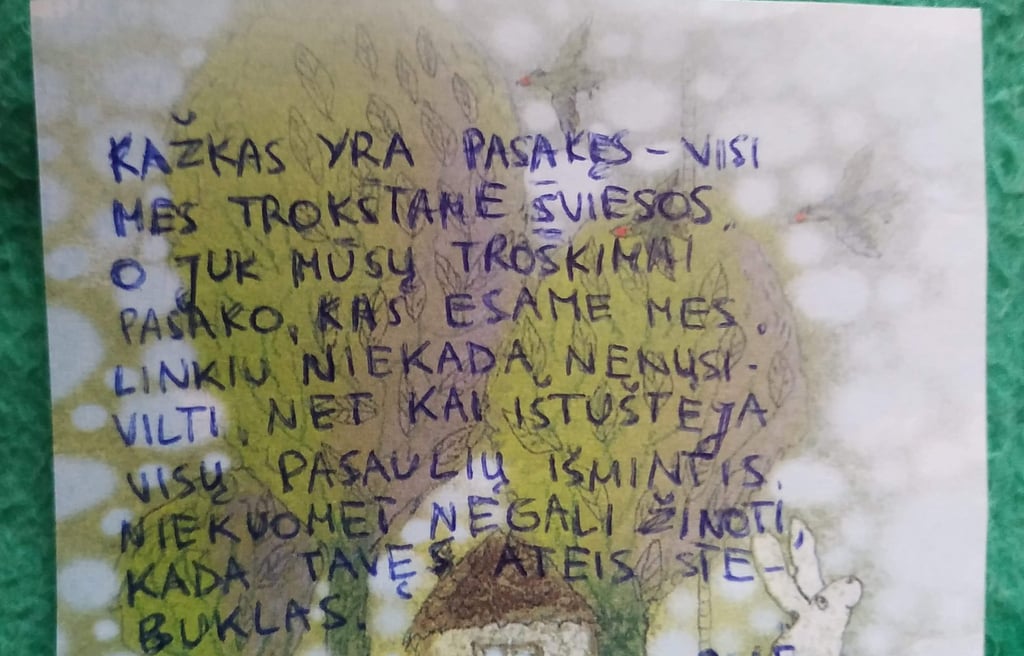 KAŽKAS YRA PASAKĘS – VISI
MES TROKŠTAME ŠVIESOS.
O JUK MŪSŲ TROŠKIMAI
PASAKO, KAS ESAME MES.
LINKIU NIEKADA NENUSI-
VILTI, NET KAI IŠTUŠTĖJA
VISŲ PASAULIŲ IŠMINTIS.
NIEKUOMET NEGALI ŽINOTI,
KADA TAVĘS ATEIS STE-
BUKLAS.